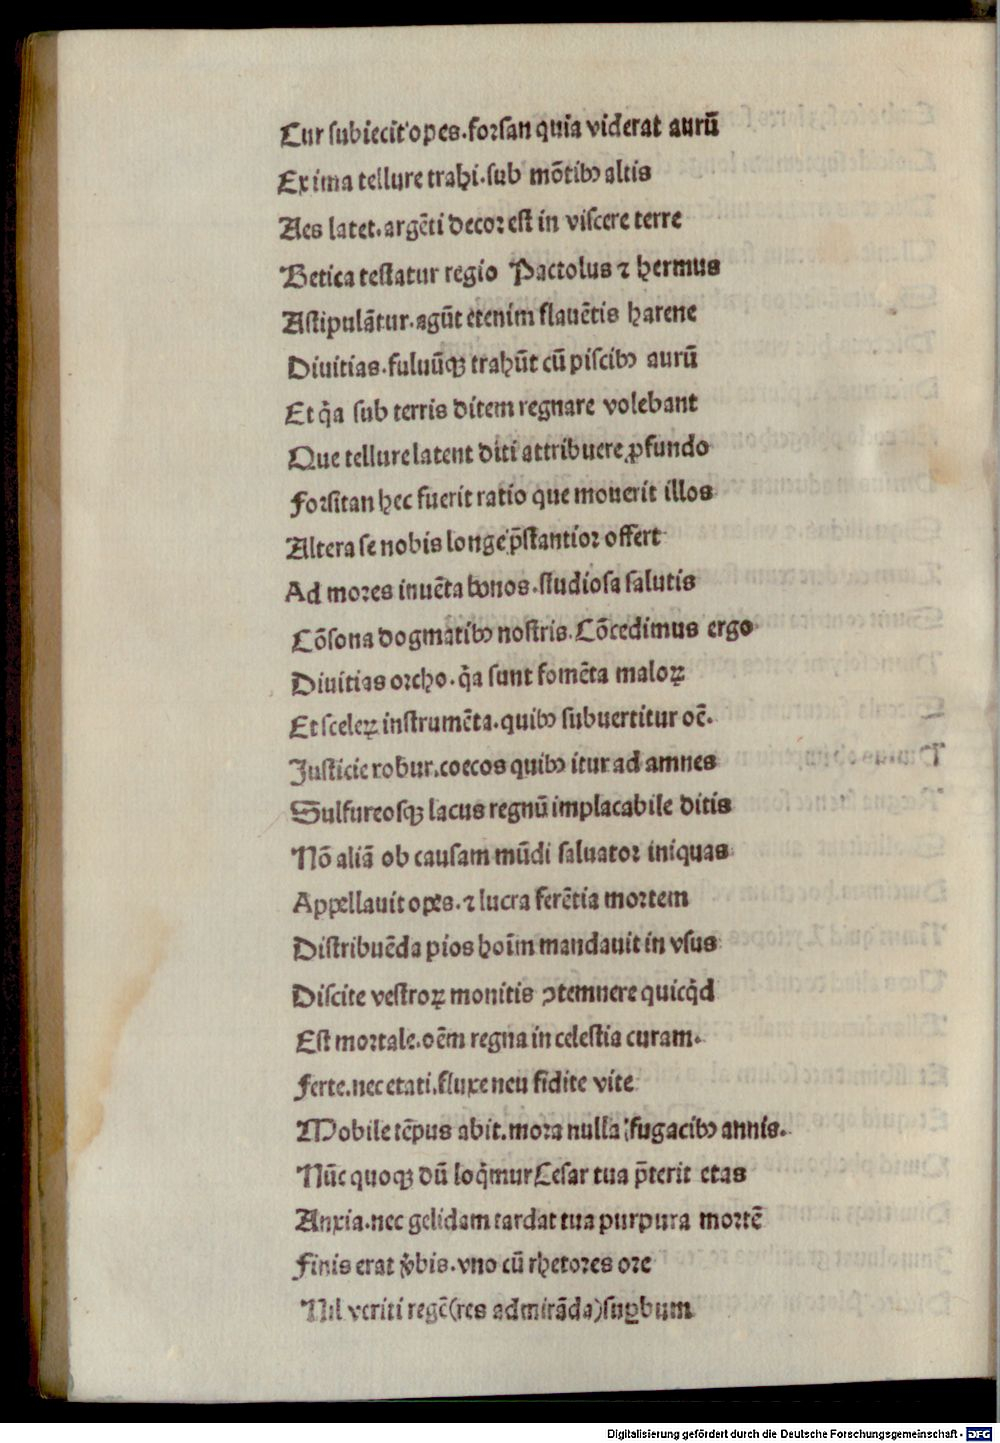 Cur subiecit opes. forsan quia viderat aurū
Ex ima tellure trahi. sub mōtibꝰ altis
Aes latet. argēti decor est in viscere terre
Betica testatur regio Pactolus ⁊ hermus
Astipulātur. agūt etenim flauētis harene
Diuitias. fuluūqꝫ trahūt cū piscibꝰ aurū
Et q̄a sub terris ditem regnare volebant
Que tellure latent diti attribuere ꝓfundo
Forsitan hec fuerit ratio que mouerit illos
Altera se nobis longe p̄stantior offert
Ad mores inuēta bonos. studiosa salutis
Cōsona dogmatibꝰ nostris. Cōcedimus ergo
Diuitias orcho. q̄a sunt fomēta maloꝝ
Et sceleꝝ instrumēta. quibꝰ subuertitur oē.
Justicie robur. coecos quibꝰ itur ad amnes
Sulfureosqꝫ lacus regnū implacabile ditis
Nō aliā ob causam mūdi saluator iniquas
Appellauit opes. ⁊ lucra ferētia mortem
Distribuēda pios hoīm mandauit in vsus
Discite vestroꝝ monitis ꝯtemnere quicq̄d
Est mortale. oēm regna in celestia curam.
Ferte. nec etati. fluxe neu fidite vite
Mobile tēpus abit. mora nulla fugacibꝰ annis.
Nūc quoqꝫ dū loq̄mur Cesar tua p̄terit etas
Anxia. nec gelidam tardat tua purpura mortē
Finis erat v̄bis. vno cū rhetores ore
Nil veriti regē (res admirāda) suꝑbum
Digitalisierung gefördert durch die Deutsche Forschungsgemeinschaft - DFG